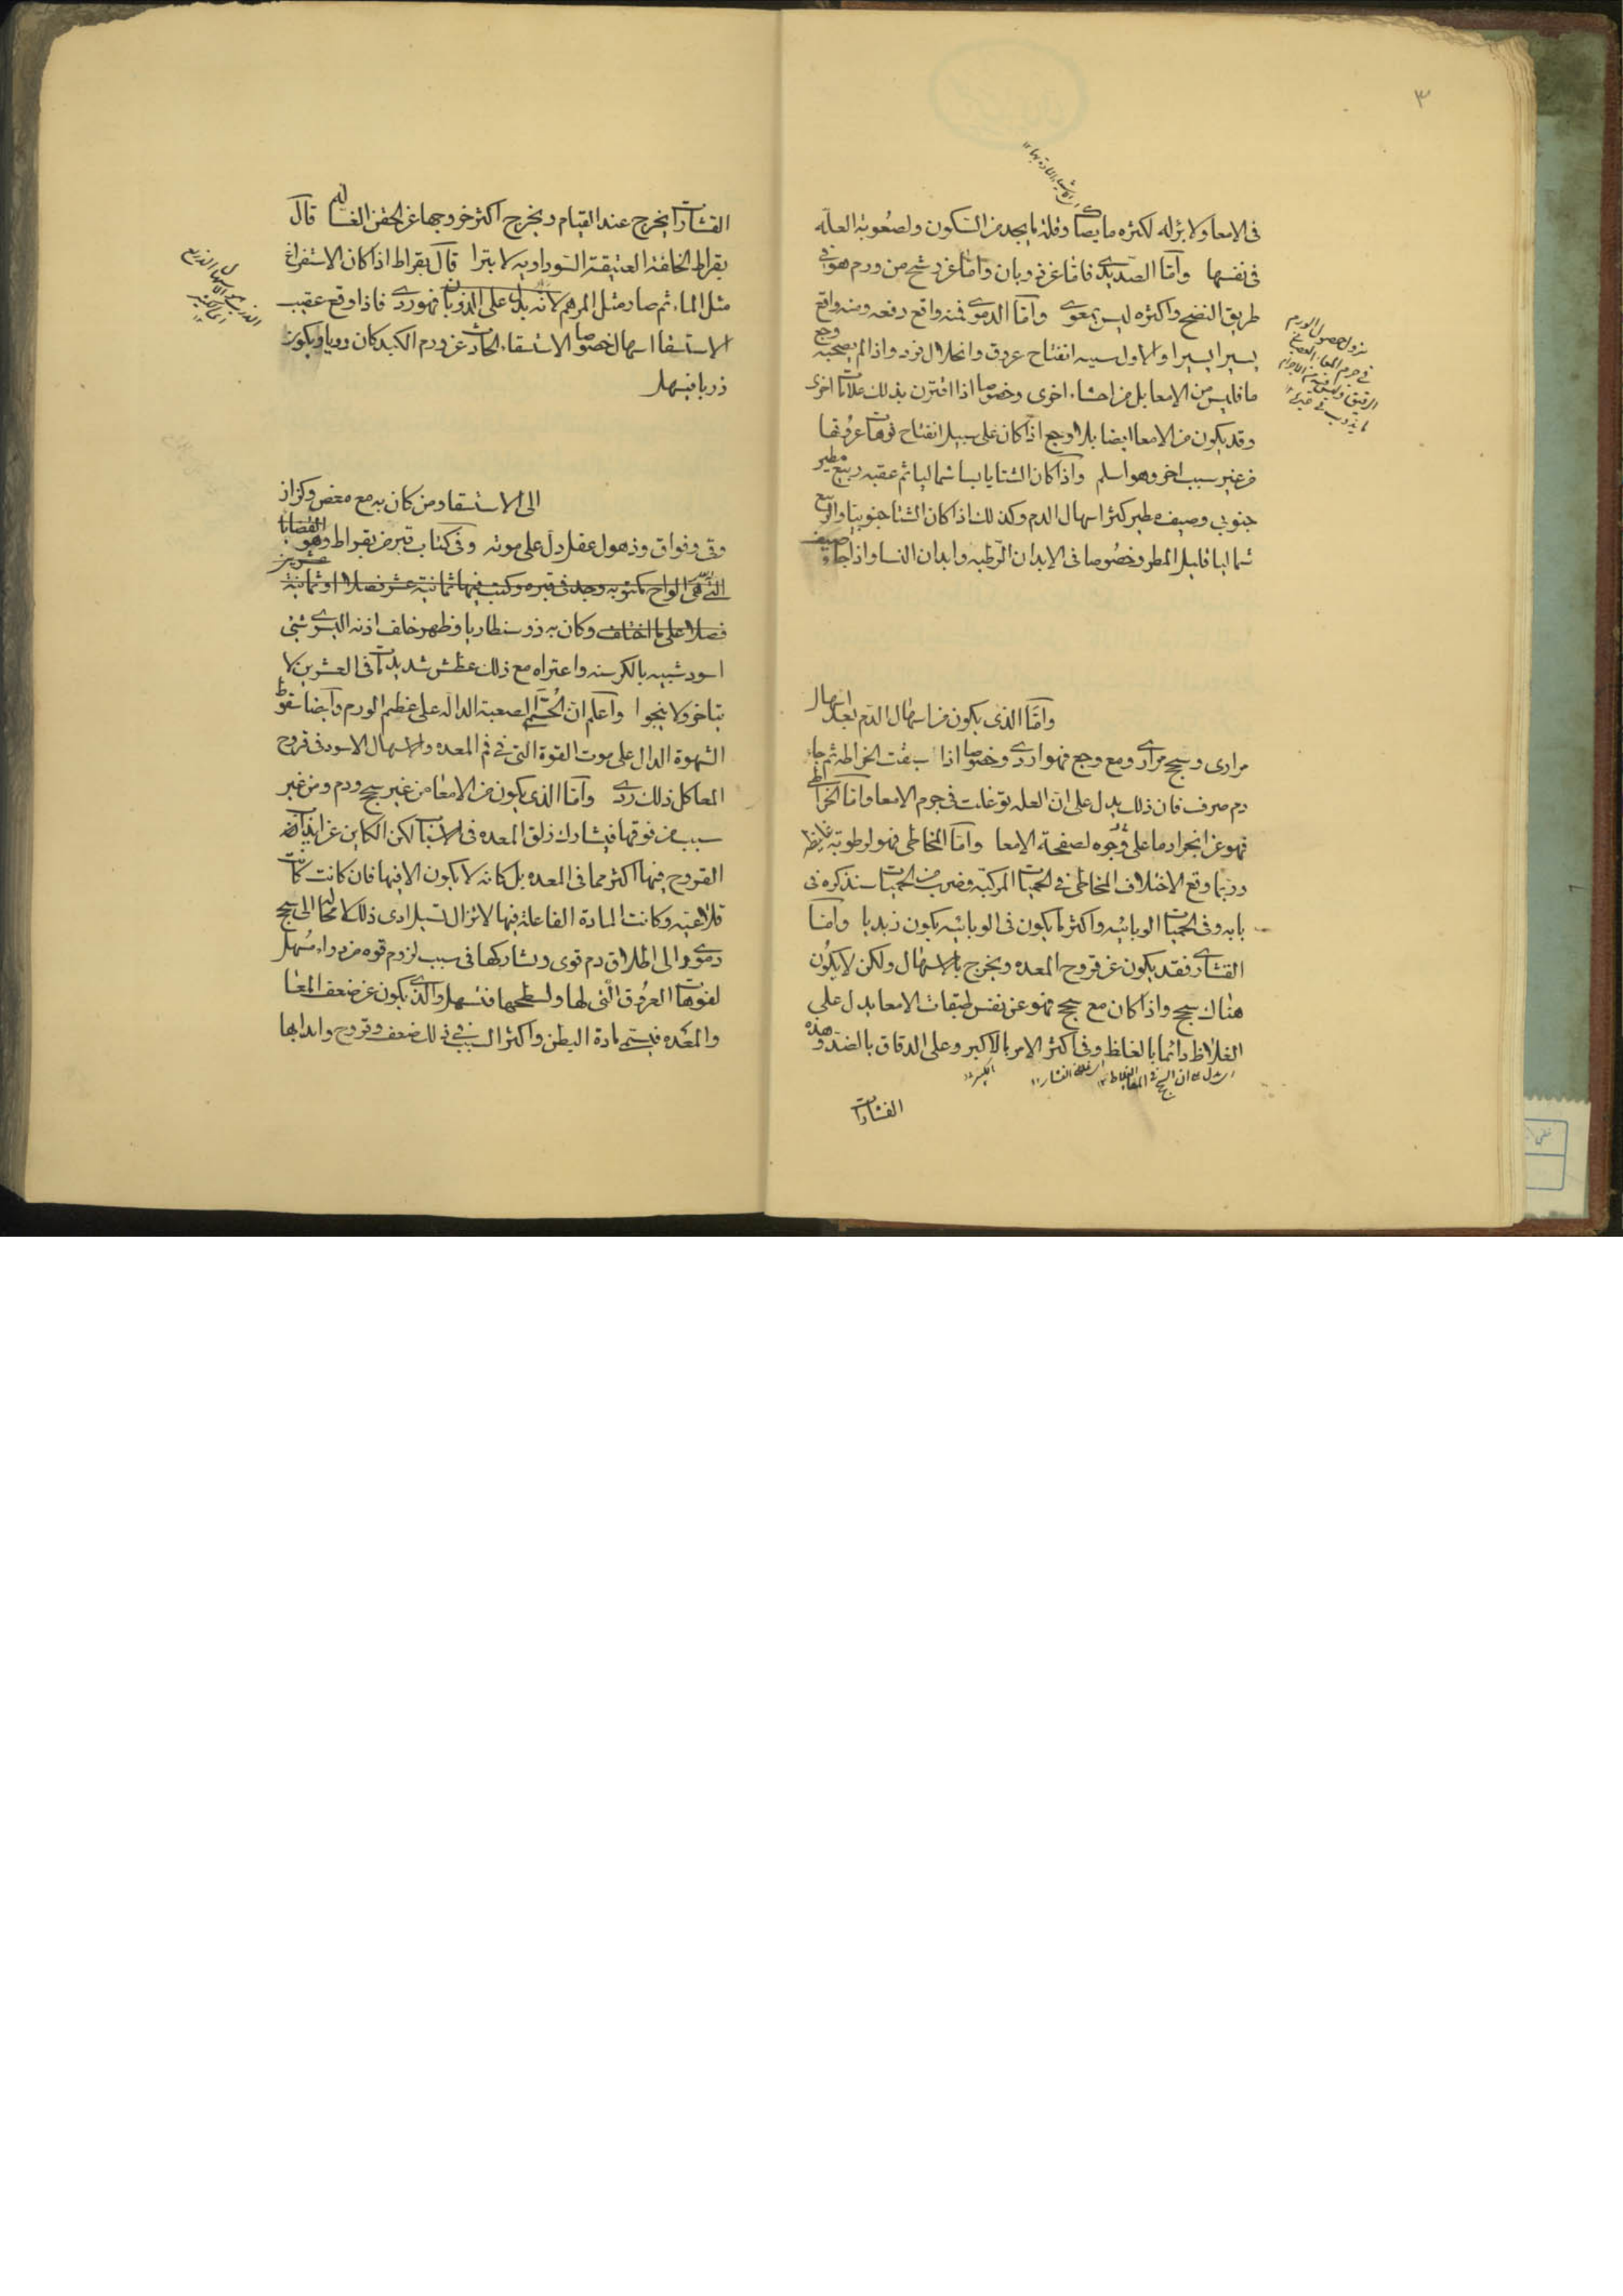 ٣
فى الامعا ولا بزاله لكثره ما يصا وقلة ما يجد من السكون ولصعوبة العله
فى نفسها وآما الصديدى فاما عن ذوبان واما عن رشح من ورم هو فى
طريق النضج واكثره ليس بمعوى وآما الدموى فمنه واقع دفعه ومنه واقع
يسيرا يسيرا والاول سببه انفتاح عروق وانحلال فرد واذا لم يصحبه وجع
ما فليس من الامعا بل من احشاء اخرى وخصوصا اذا اقترن بذلك علامات اخرى
وقد يكون من الامعا ايضا بلا وجع اذا كان على سبيل انفتاح فوهات عروقها
من غير سبب اخر وهو اسلم واذا كان الشتا يابسا شماليا ثم عقبه ربيع مطير
جنوبى وصيف مطير كثر اسهال الدم وكذلك اذا كان الشتا جنوبيا والربيع
شماليا قليل المطر وخصوصا فى الابدان الرطبه وابدان النسا واذا جاء صيف
وآما الذى يكون من اسهال الدم بعد اسهال
مرارى وسحج مرارى ومع وجع فهو اردى وخصوصا اذا سبقت الخراطه ثم جاء
دم صرف فان ذلك يدل على ان العله توغلت فى جرم الامعا وآما الخراطى
فهو عن انجراد ما على وجوه لصفحة الامعا وآما المخاطى فهو لرطوبة غليظه
وربما وقع الاختلاف المخاطى فى الحميات المركبه وضرب من الحميات سنذكره فى
بابه وفى الحميات الوبائيه واكثر ما يكون فى الوبائيه يكون زبديا وآما
القشارى فقد يكون عن قروح المعده ويخرج بالاسهال ولكن لا يكون
هناك سحج واذا كان مع سحج فهو عن نفس طبقات الامعا يدل على
الغلاظ دائما بالغلظ وفى اكثر الامر بالاكبر وعلى الدقاق بالضد وهذه
القشارات
القشارات يخرج عند القيام ويخرج اكثر خروجها عن الحقن الغساله قال
بقراط الخلفة العتيقة السوداويه لا تبرا قال بقراط اذا كان الاستفراغ
مثل الماء ثم صار مثل المرهم لانه يدل على الذوبان فهو ردى فاذا وقع عقيب
الاستسقا اسهال خصوصا الاستسقاء الحادث عن ورم الكبد كان رديا ويكون
ذربا فيسهل
الى الاستسقا ومن كان به مع مغص وكزاز
وقى وفواق وذهول عقل دل على موته وفى كتاب قبر من بقراط وهو القضايا
التى هى الواح مكتوبه وجد فى قبره وكتب فيها ثمانية عشر فصلا او ثمانية عشرين
فصلا على ما اختلف وكان به ذوسنطاريا وظهر خلف اذنه اليسرى شئ
اسود شبيه بالكرسنه واعتراه مع ذلك عطش شديد مات فى العشرين لا
يتاخر ولا ينجوا وآعلم ان الحمى الصعبة الداله على عظم الورم وآيضا سقوط
الشهوة الدال على موت القوة التى فى فم المعده والاسهال الاسود فى قروح
المعا كل ذلك ردى وآما الذى يكون من الامعا من غير سحج ودم ومن غير
سبب من فوقها فيشارك زلق المعده فى الاسباب لكن الكاين عن
القروح فيها اكثر مما فى المعده بل كانه لا يكون الا فيها فان كانت
قلاعيه وكانت المادة الفاعله فيها لا تزال تسيل ادى ذلك لا محاله الى سحج
دموى والى اطلاق دم قوى ويشاركها فى سبب لزوم قوه من دواء مسهل
لفوهات العروق التى لها ولسطحها فتسهل والذى يكون عن ضعف المعا
والمعده فيتبع مادة البطن واكثر السبب فى ذلك ضعف وقروح وابدانها